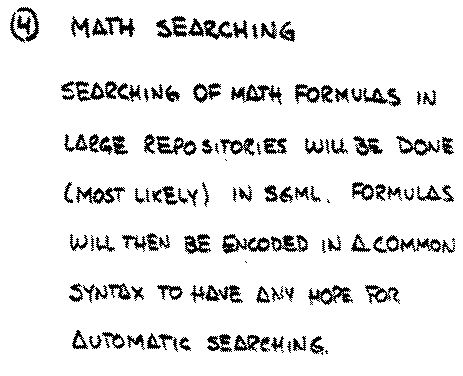 ④ MATH SEARCHING
SEARCHING OF MATH FORMULAS IN
LARGE REPOSITORIES WILL BE DONE
(MOST LIKELY) IN SGML. FORMULAS
WILL THEN BE ENCODED IN A COMMON
SYNTAX TO HAVE ANY HOPE FOR
AUTOMATIC SEARCHING.